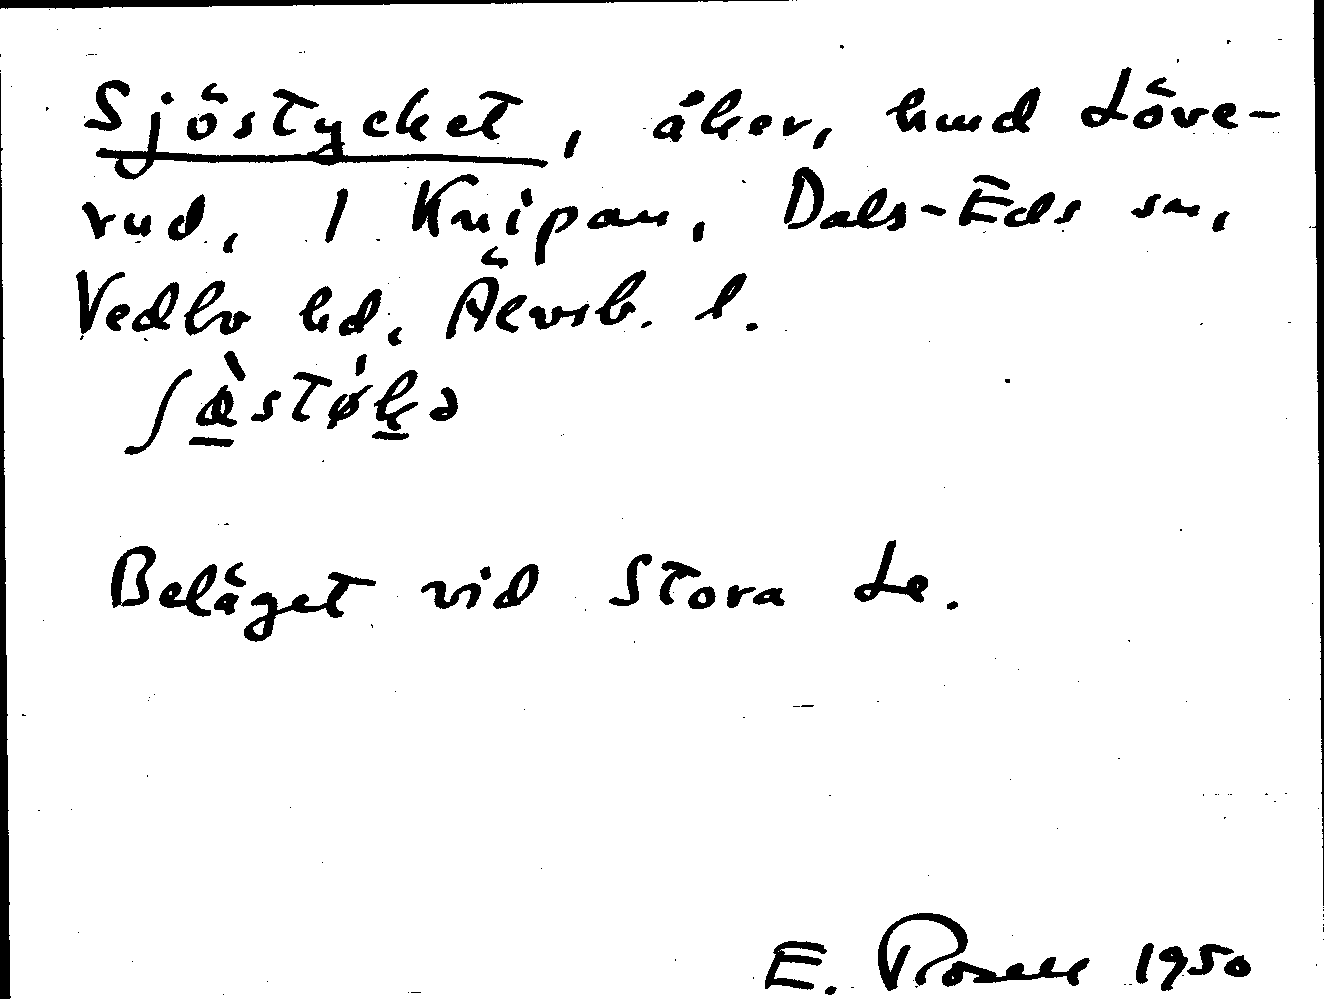 Sjöstycket, åker, hmd Löve-
rud, 1 Knipan, Dals-Eds sn,
Vedbo hd, Älvsb. l.
ʃæ̀støk̯ə
Beläget vid Stora Le.
E. Rosell 1950